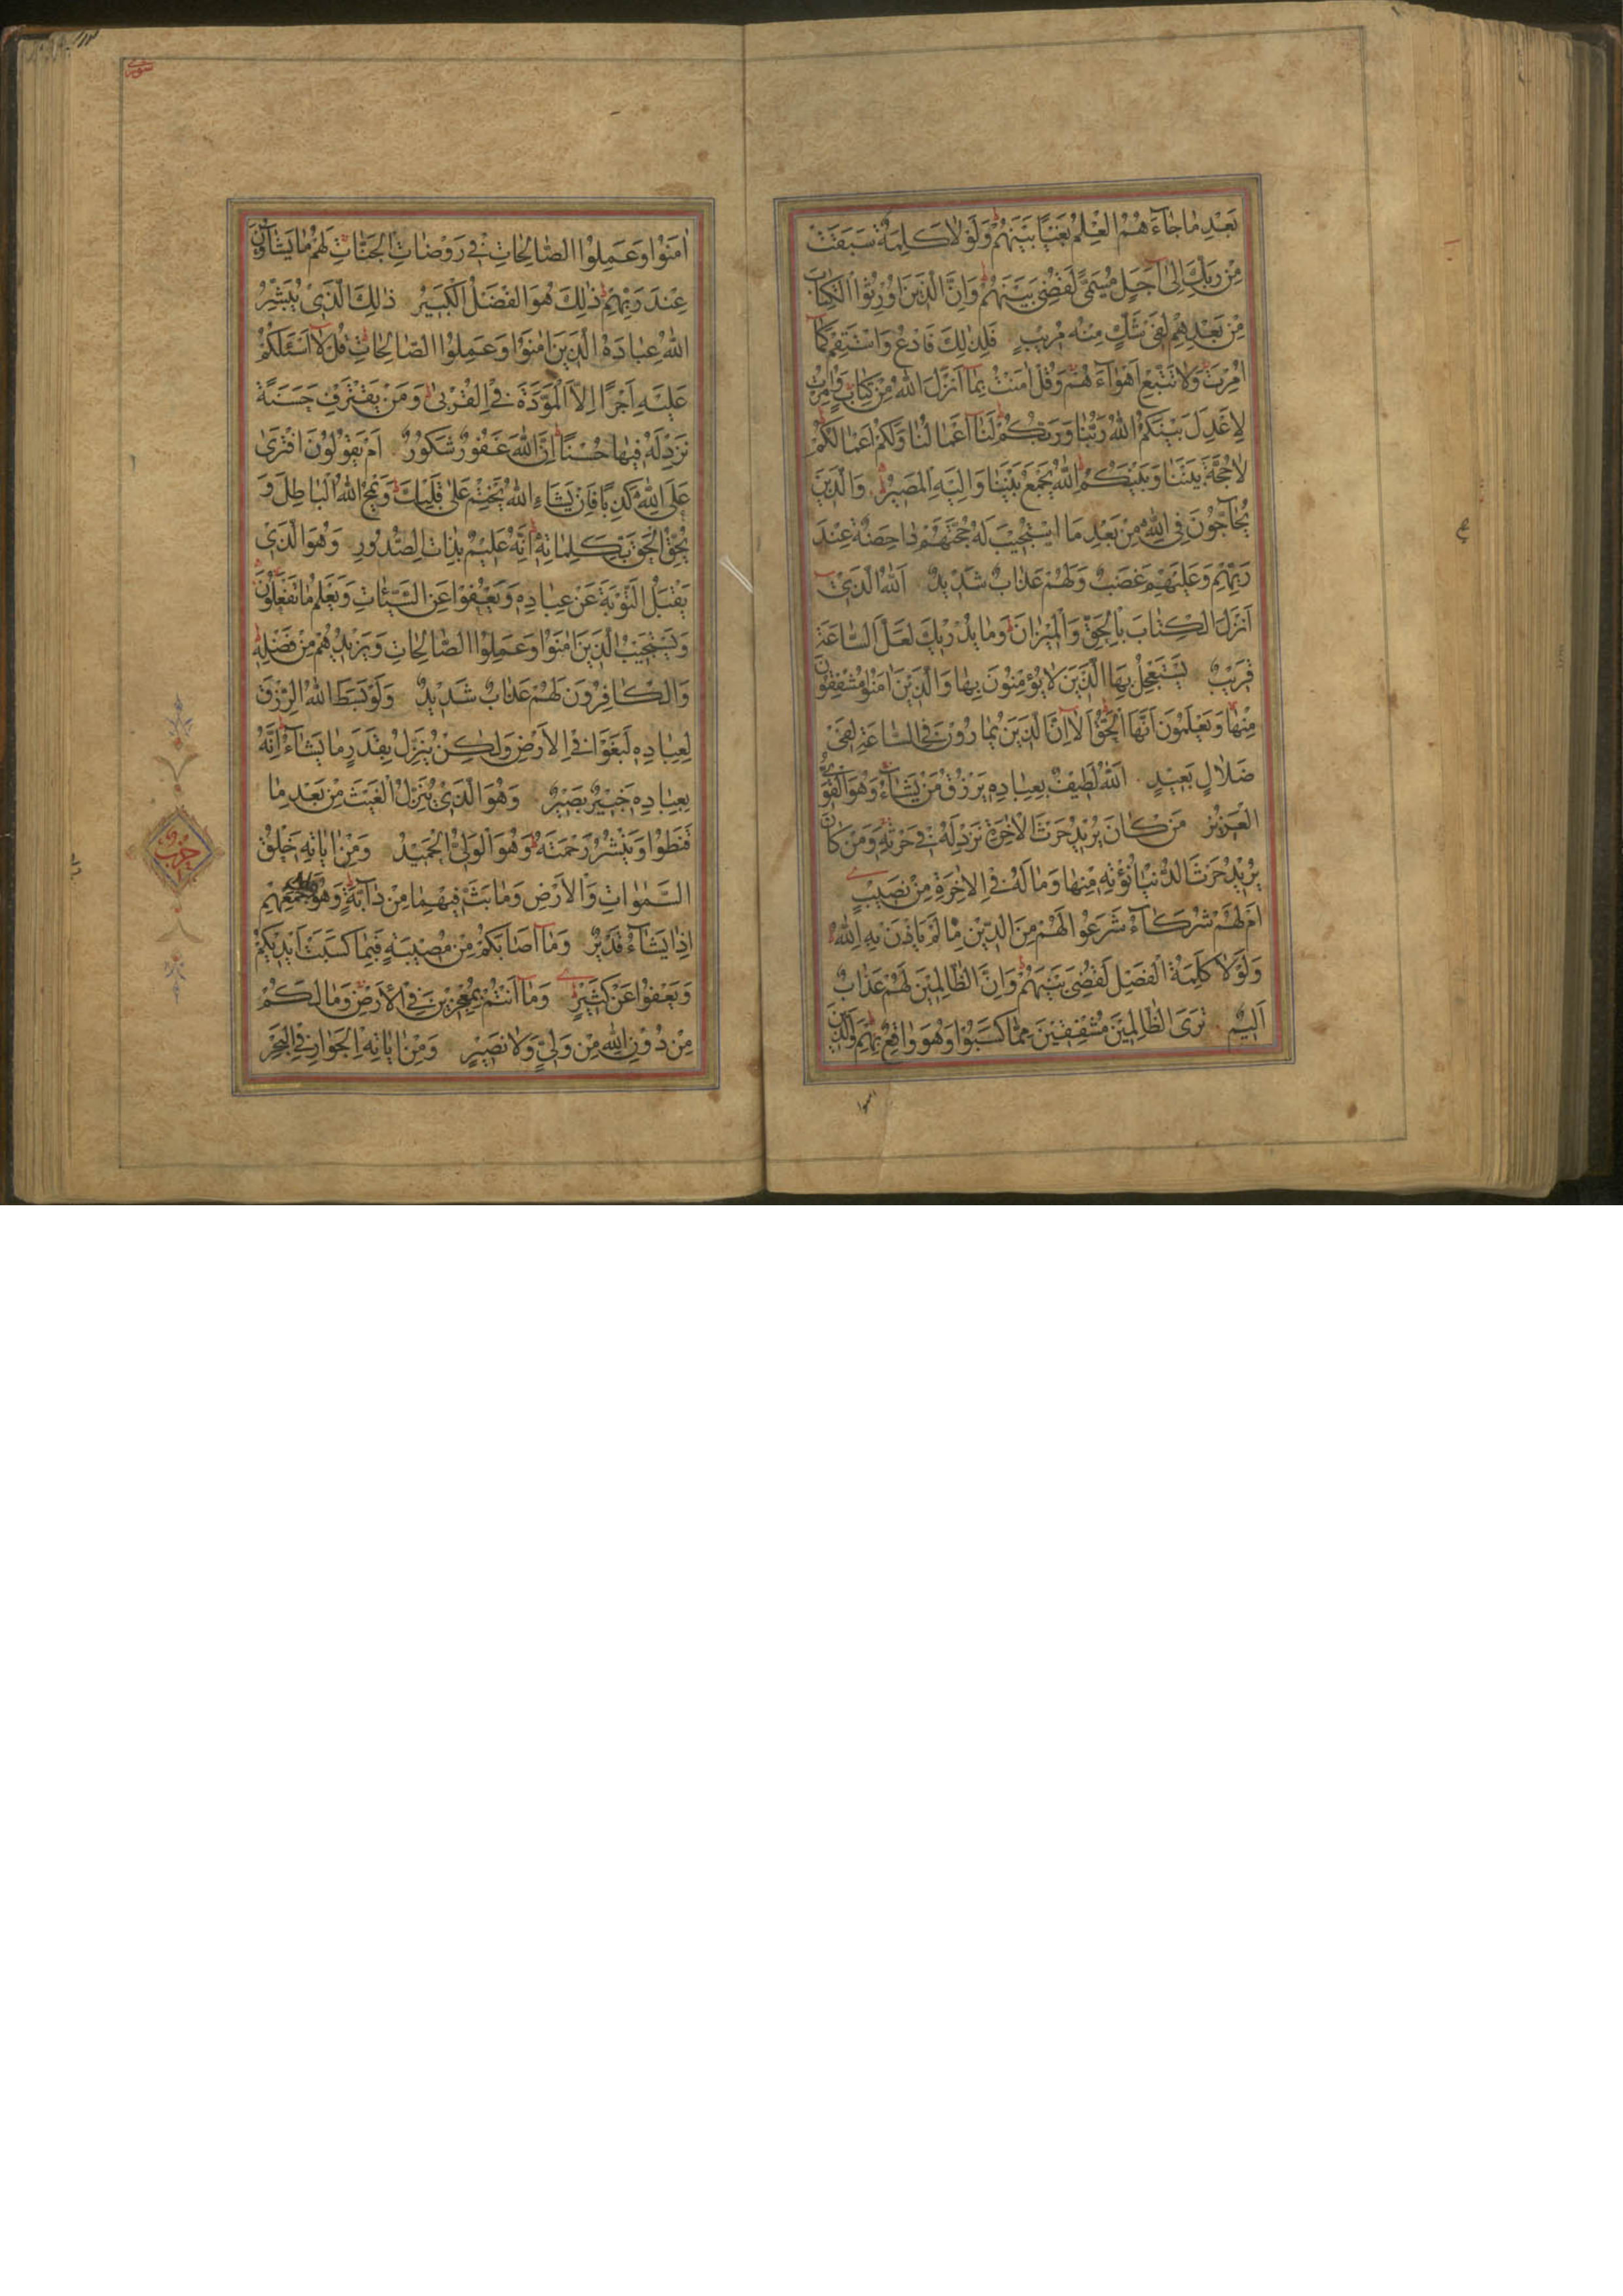 بَعْدِ مَا جَاءَهُمُ الْعِلْمُ بَغْيًا بَيْنَهُمْ وَلَوْلَا كَلِمَةٌ سَبَقَتْ
مِنْ رَبِّكَ إِلَىٰ أَجَلٍ مُسَمًّى لَقُضِيَ بَيْنَهُمْ وَإِنَّ الَّذِينَ أُورِثُوا الْكِتَابَ
مِنْ بَعْدِهِمْ لَفِي شَكٍّ مِنْهُ مُرِيبٍ فَلِذَٰلِكَ فَادْعُ وَاسْتَقِمْ كَمَا
أُمِرْتَ وَلَا تَتَّبِعْ أَهْوَاءَهُمْ وَقُلْ آمَنْتُ بِمَا أَنْزَلَ اللَّهُ مِنْ كِتَابٍ وَأُمِرْتُ
لِأَعْدِلَ بَيْنَكُمُ اللَّهُ رَبُّنَا وَرَبُّكُمْ لَنَا أَعْمَالُنَا وَلَكُمْ أَعْمَالُكُمْ
لَا حُجَّةَ بَيْنَنَا وَبَيْنَكُمُ اللَّهُ يَجْمَعُ بَيْنَنَا وَإِلَيْهِ الْمَصِيرُ وَالَّذِينَ
يُحَاجُّونَ فِي اللَّهِ مِنْ بَعْدِ مَا اسْتُجِيبَ لَهُ حُجَّتُهُمْ دَاحِضَةٌ عِنْدَ
رَبِّهِمْ وَعَلَيْهِمْ غَضَبٌ وَلَهُمْ عَذَابٌ شَدِيدٌ اللَّهُ الَّذِي
أَنْزَلَ الْكِتَابَ بِالْحَقِّ وَالْمِيزَانَ وَمَا يُدْرِيكَ لَعَلَّ السَّاعَةَ
قَرِيبٌ يَسْتَعْجِلُ بِهَا الَّذِينَ لَا يُؤْمِنُونَ بِهَا وَالَّذِينَ آمَنُوا مُشْفِقُونَ
مِنْهَا وَيَعْلَمُونَ أَنَّهَا الْحَقُّ أَلَا إِنَّ الَّذِينَ يُمَارُونَ فِي السَّاعَةِ لَفِي
ضَلَالٍ بَعِيدٍ اللَّهُ لَطِيفٌ بِعِبَادِهِ يَرْزُقُ مَنْ يَشَاءُ وَهُوَ الْقَوِيُّ
الْعَزِيزُ مَنْ كَانَ يُرِيدُ حَرْثَ الْآخِرَةِ نَزِدْ لَهُ فِي حَرْثِهِ وَمَنْ كَانَ
يُرِيدُ حَرْثَ الدُّنْيَا نُؤْتِهِ مِنْهَا وَمَا لَهُ فِي الْآخِرَةِ مِنْ نَصِيبٍ
أَمْ لَهُمْ شُرَكَاءُ شَرَعُوا لَهُمْ مِنَ الدِّينِ مَا لَمْ يَأْذَنْ بِهِ اللَّهُ
وَلَوْلَا كَلِمَةُ الْفَصْلِ لَقُضِيَ بَيْنَهُمْ وَإِنَّ الظَّالِمِينَ لَهُمْ عَذَابٌ
أَلِيمٌ تَرَى الظَّالِمِينَ مُشْفِقِينَ مِمَّا كَسَبُوا وَهُوَ وَاقِعٌ بِهِمْ وَالَّذِينَ
آمَنُوا وَعَمِلُوا الصَّالِحَاتِ فِي رَوْضَاتِ الْجَنَّاتِ لَهُمْ مَا يَشَاءُونَ
عِنْدَ رَبِّهِمْ ذَٰلِكَ هُوَ الْفَضْلُ الْكَبِيرُ ذَٰلِكَ الَّذِي يُبَشِّرُ
اللَّهُ عِبَادَهُ الَّذِينَ آمَنُوا وَعَمِلُوا الصَّالِحَاتِ قُلْ لَا أَسْئَلُكُمْ
عَلَيْهِ أَجْرًا إِلَّا الْمَوَدَّةَ فِي الْقُرْبَىٰ وَمَنْ يَقْتَرِفْ حَسَنَةً
نَزِدْ لَهُ فِيهَا حُسْنًا إِنَّ اللَّهَ غَفُورٌ شَكُورٌ أَمْ يَقُولُونَ افْتَرَىٰ
عَلَى اللَّهِ كَذِبًا فَإِنْ يَشَإِ اللَّهُ يَخْتِمْ عَلَىٰ قَلْبِكَ وَيَمْحُ اللَّهُ الْبَاطِلَ وَ
يُحِقُّ الْحَقَّ بِكَلِمَاتِهِ إِنَّهُ عَلِيمٌ بِذَاتِ الصُّدُورِ وَهُوَ الَّذِي
يَقْبَلُ التَّوْبَةَ عَنْ عِبَادِهِ وَيَعْفُوا عَنِ السَّيِّئَاتِ وَيَعْلَمُ مَا تَفْعَلُونَ
وَيَسْتَجِيبُ الَّذِينَ آمَنُوا وَعَمِلُوا الصَّالِحَاتِ وَيَزِيدُهُمْ مِنْ فَضْلِهِ
وَالْكَافِرُونَ لَهُمْ عَذَابٌ شَدِيدٌ وَلَوْ بَسَطَ اللَّهُ الرِّزْقَ
لِعِبَادِهِ لَبَغَوْا فِي الْأَرْضِ وَلَٰكِنْ يُنَزِّلُ بِقَدَرٍ مَا يَشَاءُ إِنَّهُ
بِعِبَادِهِ خَبِيرٌ بَصِيرٌ وَهُوَ الَّذِي يُنَزِّلُ الْغَيْثَ مِنْ بَعْدِ مَا
قَنَطُوا وَيَنْشُرُ رَحْمَتَهُ وَهُوَ الْوَلِيُّ الْحَمِيدُ وَمِنْ آيَاتِهِ خَلْقُ
السَّمَٰوَاتِ وَالْأَرْضِ وَمَا بَثَّ فِيهِمَا مِنْ دَابَّةٍ وَهُوَ عَلَىٰ جَمْعِهِمْ
إِذَا يَشَاءُ قَدِيرٌ وَمَا أَصَابَكُمْ مِنْ مُصِيبَةٍ فَبِمَا كَسَبَتْ أَيْدِيكُمْ
وَيَعْفُوا عَنْ كَثِيرٍ وَمَا أَنْتُمْ بِمُعْجِزِينَ فِي الْأَرْضِ وَمَا لَكُمْ
مِنْ دُونِ اللَّهِ مِنْ وَلِيٍّ وَلَا نَصِيرٍ وَمِنْ آيَاتِهِ الْجَوَارِ فِي الْبَحْرِ
حزب